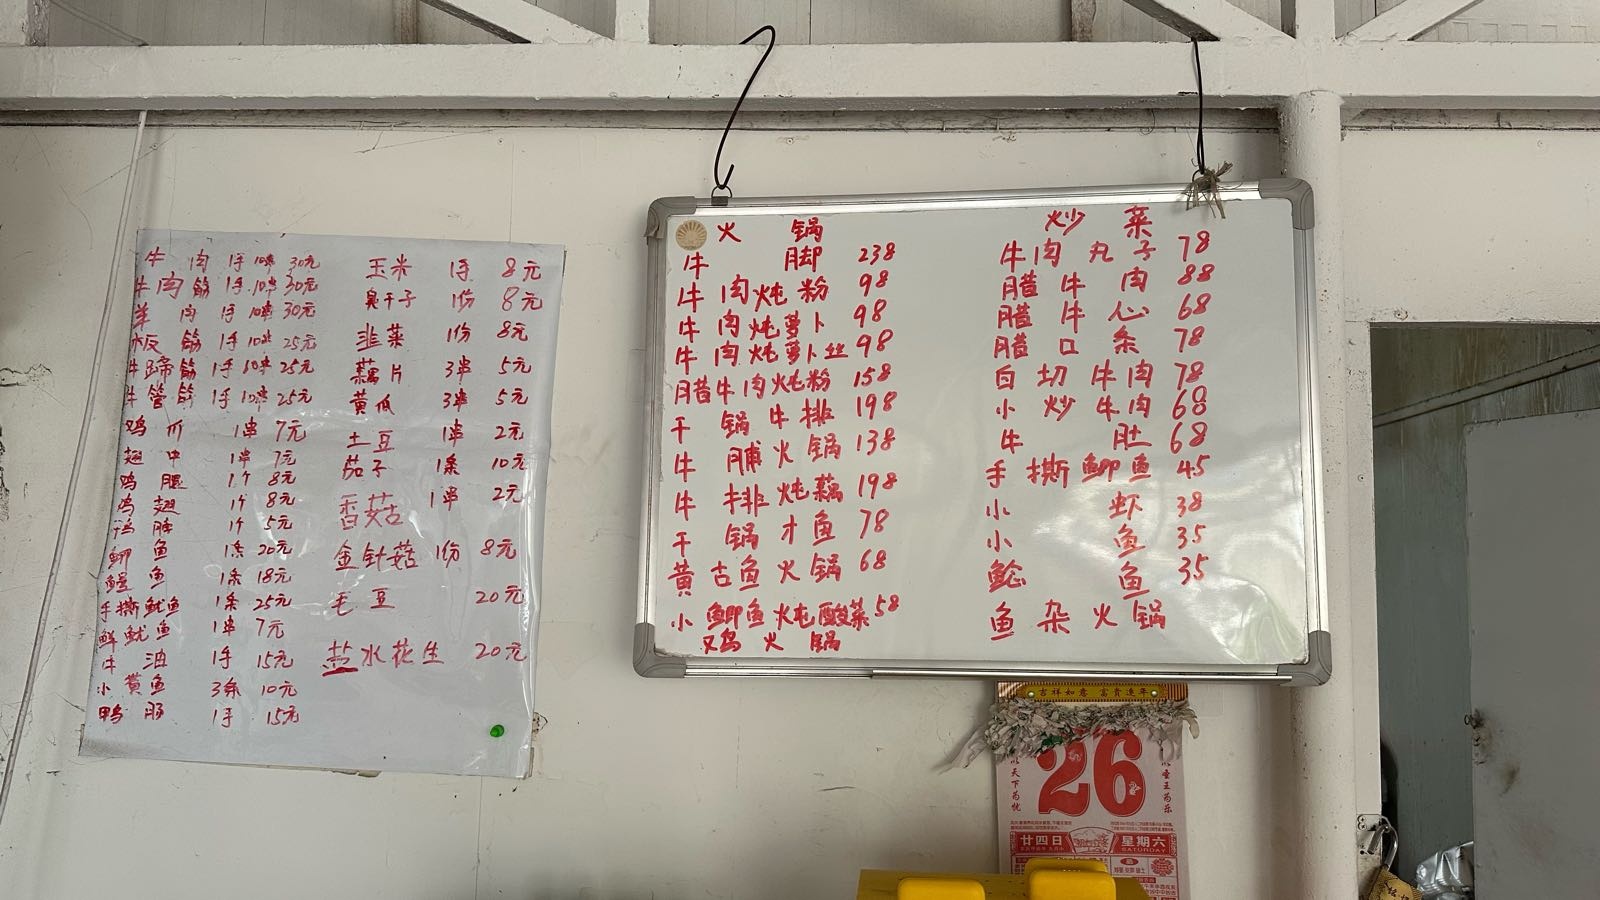 牛肉 1手 10串 30元
牛肉筋 1手 10串 30元
羊肉 1手 10串 30元
板筋 1手 10串 25元
牛蹄筋 1手 10串 25元
牛管筋 1手 10串 25元
鸡爪 1串 7元
翅中 1串 7元
鸡腿 1个 8元
鸡翅 1个 8元
鸡脖 1个 5元
鲫鱼 1条 20元
鳊鱼 1条 18元
手撕鱿鱼 1条 25元
鲜鱿鱼 1串 7元
牛油 1手 15元
小黄鱼 3条 10元
鸭肠 1手 15元
玉米 1手 8元
臭干子 1份 8元
韭菜 1份 8元
藕片 3串 5元
黄瓜 3串 5元
土豆 1串 2元
茄子 1条 10元
香菇 1串 2元
金针菇 1份 8元
毛豆 20元
盐水花生 20元
火锅
牛脚 238
牛肉炖粉 98
牛肉炖萝卜 98
牛肉炖萝卜丝 98
腊牛肉炖粉 158
干锅牛排 198
牛脯火锅 138
牛排炖藕 198
干锅才鱼 78
黄古鱼火锅 68
小鲫鱼炖酸菜 58
鸡火锅
炒菜
牛肉丸子 78
腊牛肉 88
腊牛心 68
腊口条 78
白切牛肉 78
小炒牛肉 68
牛肚 68
手撕鲫鱼 45
小虾 38
小鱼 35
鲶鱼 35
鱼杂火锅
吉祥如意 富贵连年
26
廿四日 星期六
SATURDAY